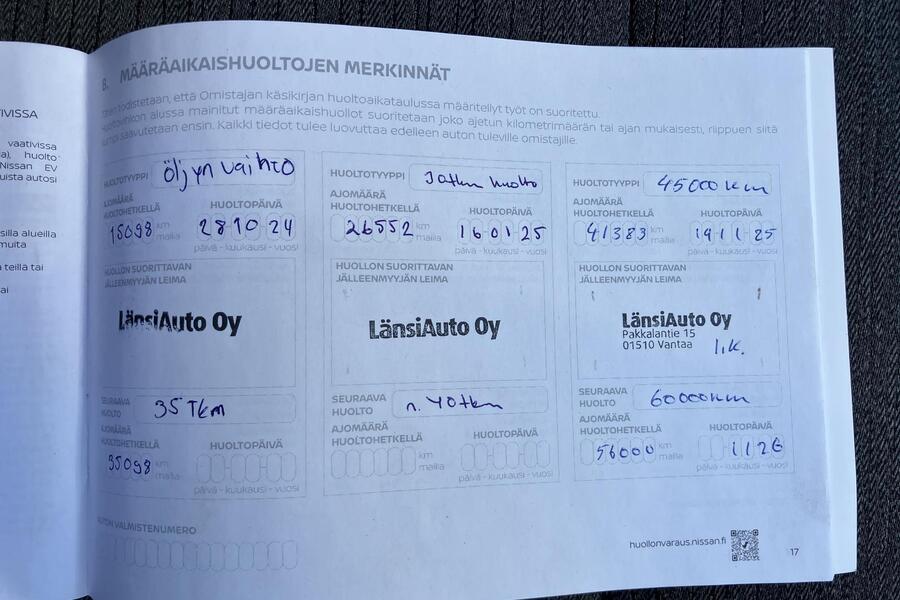 IVISSA
vaativissa
a), huolto-
Nissan EV
uista autosi
silla alueilla
muita
a teillä tai
ai
8. MÄÄRÄAIKAISHUOLTOJEN MERKINNÄT
todistetaan, että Omistajan käsikirjan huoltoaikataulussa määritellyt työt on suoritettu.
alussa mainitut määräaikaishuollot suoritetaan joko ajetun kilometrimäärän tai ajan mukaisesti, riippuen siitä
saavutetaan ensin. Kaikki tiedot tulee luovuttaa edelleen auton tuleville omistajille.
HUOLTOTYYPPI öljyn vaihto
AJOMÄÄRÄ
HUOLTOHETKELLÄ HUOLTOPÄIVÄ
15098 km 28 10 24
mailia päivä - kuukausi - vuosi
HUOLLON SUORITTAVAN
JÄLLEENMYYJÄN LEIMA
LänsiAuto Oy
SEURAAVA
HUOLTO 35 Tkm
AJOMÄÄRÄ
HUOLTOHETKELLÄ HUOLTOPÄIVÄ
35098 km
mailia päivä - kuukausi - vuosi
HUOLTOTYYPPI 30tkm huolto
AJOMÄÄRÄ
HUOLTOHETKELLÄ HUOLTOPÄIVÄ
26552 km 16 01 25
mailia päivä - kuukausi - vuosi
HUOLLON SUORITTAVAN
JÄLLEENMYYJÄN LEIMA
LänsiAuto Oy
SEURAAVA
HUOLTO n. 40tkm
AJOMÄÄRÄ
HUOLTOHETKELLÄ HUOLTOPÄIVÄ
km
mailia päivä - kuukausi - vuosi
HUOLTOTYYPPI 45000km
AJOMÄÄRÄ
HUOLTOHETKELLÄ HUOLTOPÄIVÄ
41383 km 19 11 25
mailia päivä - kuukausi - vuosi
HUOLLON SUORITTAVAN
JÄLLEENMYYJÄN LEIMA
LänsiAuto Oy
Pakkalantie 15
01510 Vantaa I.K.
SEURAAVA
HUOLTO 60000km
AJOMÄÄRÄ
HUOLTOHETKELLÄ HUOLTOPÄIVÄ
56000 km 11 26
mailia päivä - kuukausi - vuosi
AUTON VALMISTENUMERO
huollonvaraus.nissan.fi
17